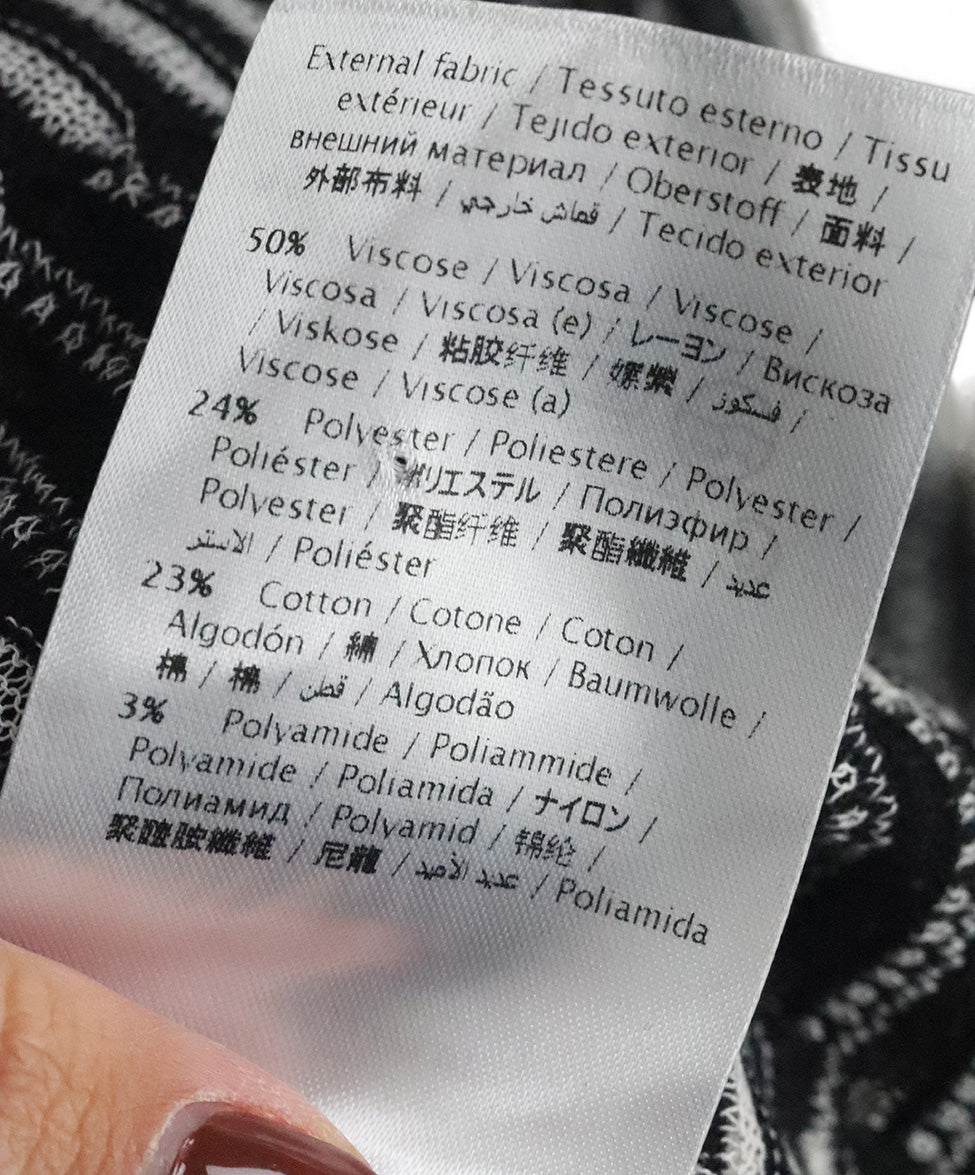 External fabric / Tessuto esterno / Tissu
extérieur / Tejido exterior / 表地 /
внешний материал / Oberstoff / 面料 /
外部布料 / قماش خارجي / Tecido exterior
50% Viscose / Viscosa / Viscose /
Viscosa / Viscosa (e) / レーヨン / Вискоза
/ Viskose / 粘胶纤维 / 嫘縈 / فسكوز /
Viscose / Viscose (a)
24% Polyester / Poliestere / Polyester /
Poliéster / ポリエステル / Полиэфир /
Polyester / 聚酯纤维 / 聚酯纖維 / عديد
الاستر / Poliéster
23% Cotton / Cotone / Coton /
Algodón / 綿 / Хлопок / Baumwolle /
棉 / 棉 / قطن / Algodão
3% Polyamide / Poliammide /
Polyamide / Poliamida / ナイロン /
Полиамид / Polyamid / 锦纶 /
聚醯胺纖維 / 尼龍 / عديد الأميد / Poliamida